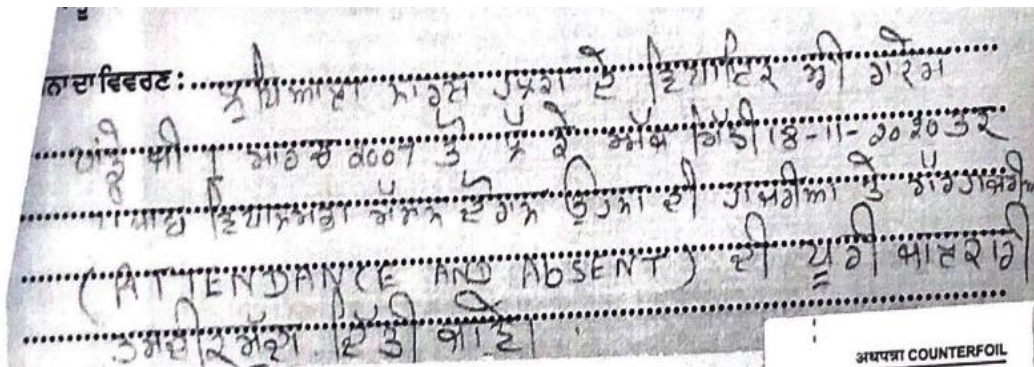 ਨਾ ਦਾ ਵਿਵਰਣ : ਲੁਧਿਆਣਾ ਸਾਊਥ ਹਲਕਾ ਦੇ ਵਿਧਾਇਕ ਸ਼੍ਰੀ
ਜੀ 1 ਮਾਰਚ 2007 ਤੋਂ ਲੈ ਕੇ ਅੱਜ ਮਿਤੀ 18-11-2020 ਤਕ
ਪੰਜਾਬ ਵਿਧਾਨਸਭਾ ਸੈਸ਼ਨ ਦੌਰਾਨ ਉਹਨਾਂ ਦੀ ਹਾਜ਼ਰੀਆਂ ਤੇ ਗੈਰਹਾਜ਼ਰੀ
(ATTENDANCE AND AbSENT) ਦੀ ਪੂਰੀ ਜਾਣਕਾਰੀ
ਤਸਦੀਕਸ਼ੁਦਾ ਦਿੱਤੀ ਜਾਵੇ।
अधपन्ना COUNTERFOIL